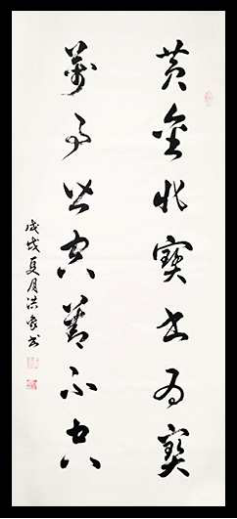 黄金非寶書為寶
萬事皆空善不空
戊戌夏月洪書